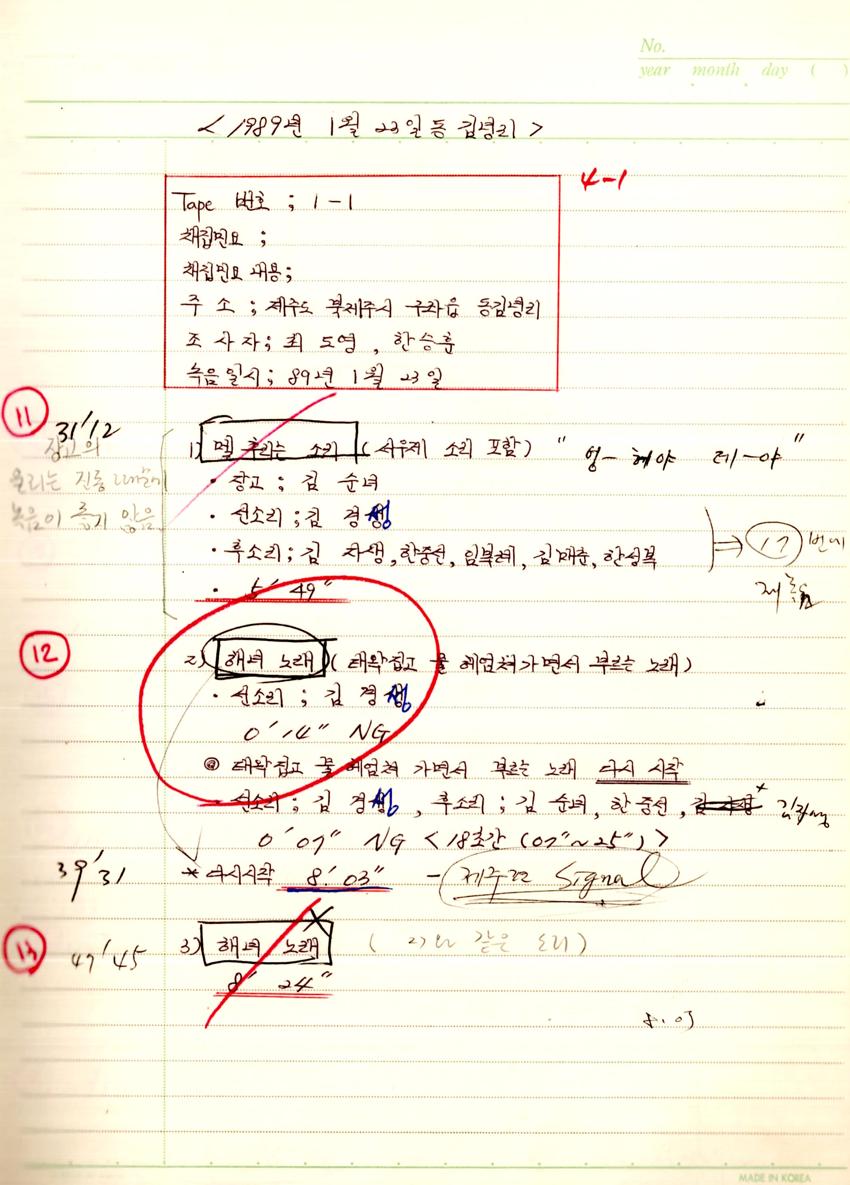 No.
year month day ( )
< 1989년 1월 23일 동김녕리 >
4-1
Tape 번호 ; 1-1
채집민요 ;
채집민요 내용;
주 소 ; 제주도 북제주시 구좌읍 동김녕리
조 사 자; 최 도영 , 한승훈
녹음일시; 89년 1월 23일
11
31'12
장고의
울리는 진동 때문에
녹음이 좋지 않음
1) 멜 후리는 소리 (서우제 소리 포함) "엉- 허야 데-야"
· 장고 ; 김 순녀
· 선소리 ; 김 경성
· 후소리; 김 자생, 한중선, 임복례, 김매춘, 한성복
⇒ 17 번에
재녹음
· 5' 49"
12
2) 해녀 노래 (태왁집고 물 헤엄쳐가면서 부르는 노래)
· 선소리 ; 김 경성
0'14" NG
@ 태왁집고 물 헤엄쳐 가면서 부르는 노래 다시 시작
- 선소리 ; 김 경성 , 후소리 ; 김 순녀, 한중선, 김자생
0'07" NG < 18초간 (07"~25") >
39'31
* 다시시작 8' 03" - 제주도 Signal
13
47'45
3) 해녀 노래 ( 2)와 같은 소리 )
8" 24"
MADE IN KOREA